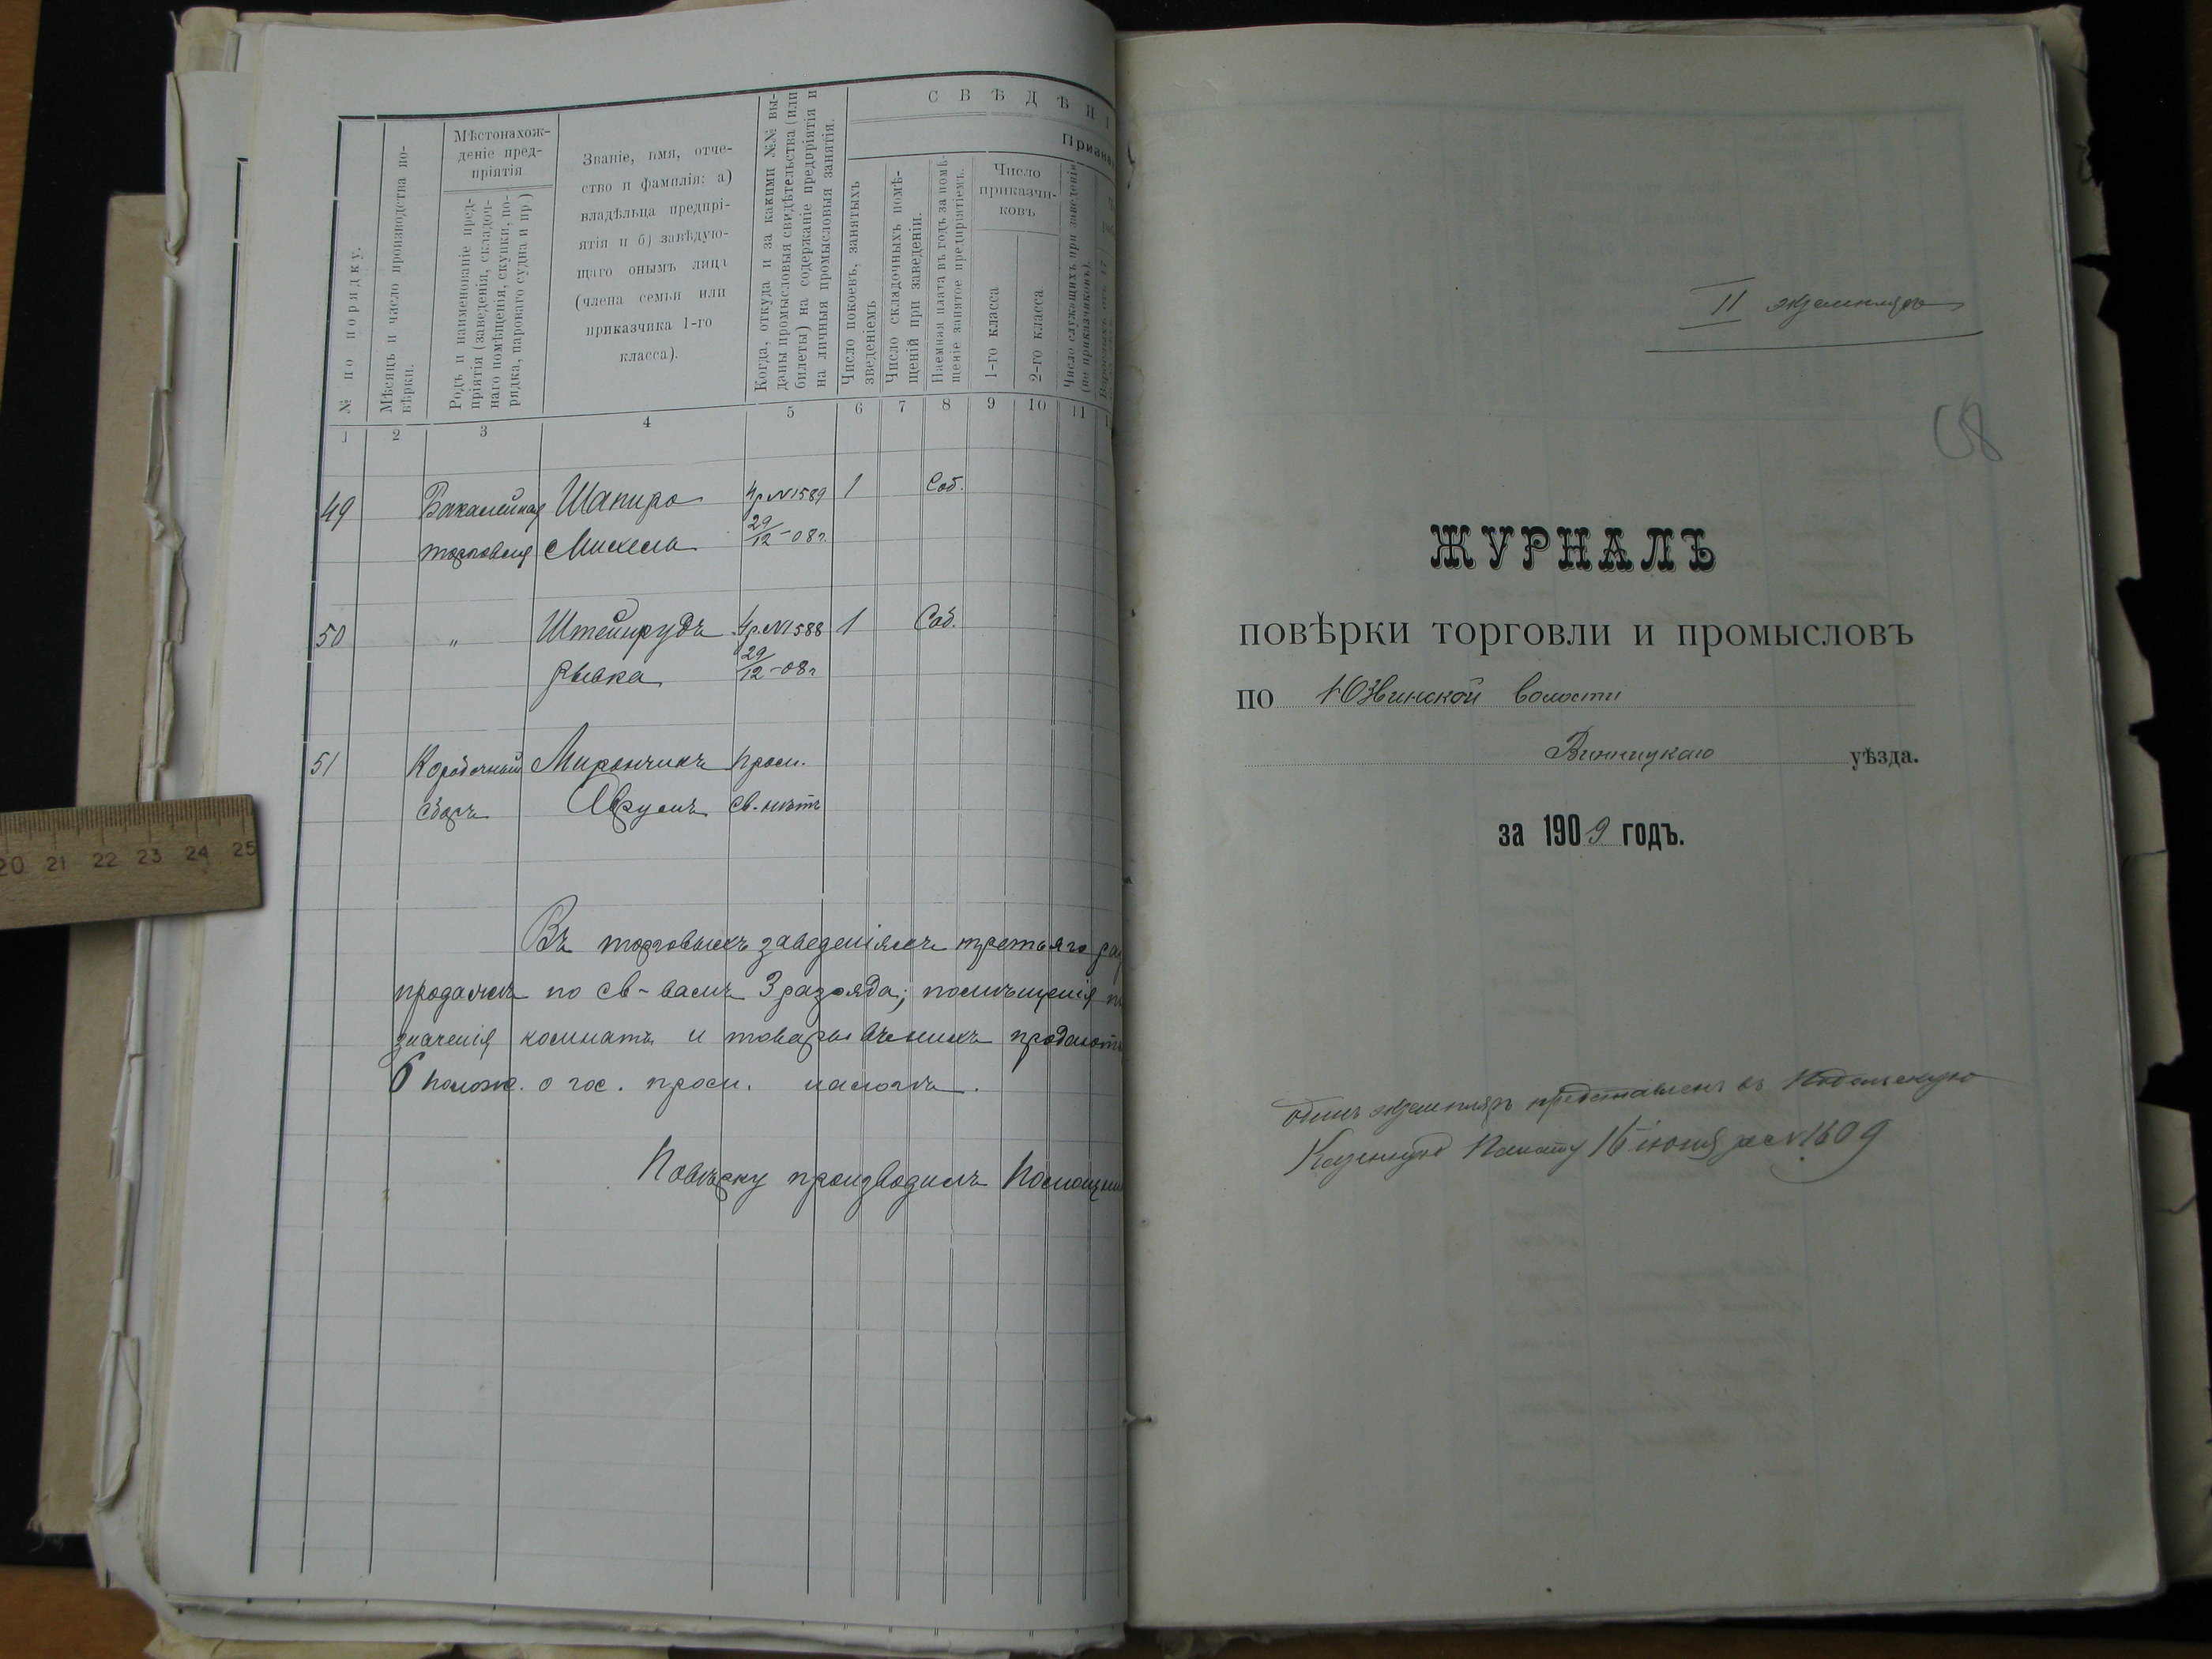 СВѢДѢНІ
Призна
№ по порядку.
Мѣсяцъ и число производства по-
вѣрки.
Мѣстонахож-
деніе пред-
пріятія
Родъ и наименованіе пред-
пріятія (заведенія, складоч-
наго помѣщенія, скупки, по-
рядка, парового судна и пр)
Званіе, имя, отче-
ство и фамилія: а)
владѣльца предпрі-
ятія и б) завѣдую-
щаго онымъ лица
(члена семьи или
приказчика 1-го
класса).
Когда, откуда и за какими №№ вы-
даны промысловыя свидѣтельства (или
билеты) на содержаніе предпріятія и
на личныя промысловыя занятія.
Число покоевъ, занятыхъ
зведеніемъ
Число складочныхъ помѣ-
щеній при заведеніи.
Наемная плата въ годъ за помѣ-
щеніе занятое предпріятіемъ.
Число
приказчи-
ковъ
1-го класса
2-го класса
Число служащихъ при заведеніи
(не приказчиковъ).
Взрослыхъ отъ 17
1 2 3 4 5 6 7 8 9 10 11
49 Бакалейная Шапиро 4 р. N 1589 1 Соб.
торговля Михель 29/12-08 г.
50 " Штейнрудъ 4 р. N 1588 1 Соб.
Рывка 29/12-08 г
51 Коробочный Мирончикъ пром.
сборъ Аврумъ св. нѣтъ
Въ торговыхъ заведеніяхъ третьяго раз
продажи по св-вамъ 3 разряда; помѣщенія
значенія комнатъ и товары въ нихъ продаютъ
6 полож. о гос. пром. налогѣ.
Повѣрку производилъ Помощни
II экземпляръ
58
ЖУРНАЛЪ
повѣрки торговли и промысловъ
по Юзвинской волости
Винницкаго уѣзда.
за 1909 годъ.
одинъ экземпляръ представленъ въ Подольскую
Казенную Палату 16 іюня за N 1609